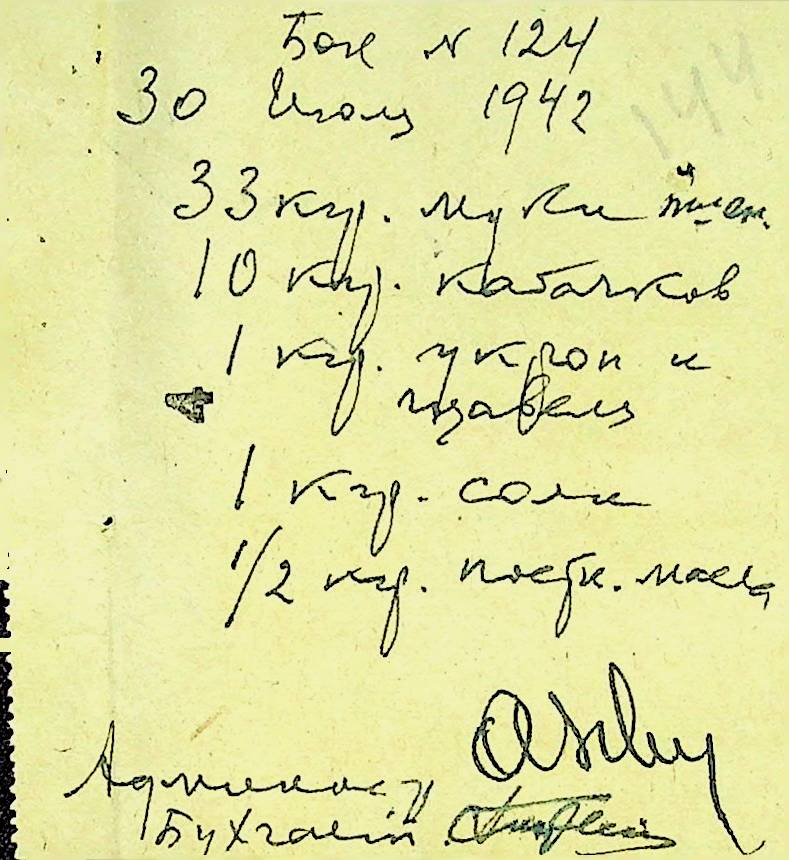 Бон № 124
144
30 Июля 1942
33 кгр. муки пшен.
10 кгр. кабачков
1 кгр. укроп и
щавель
1 кгр. соли
1/2 кгр. постн. масла
Бухгалт.